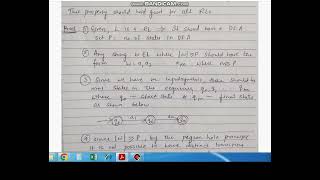 This property should hold good for all RLs.
Proof: ① Given, L is a RL → It should have a DFA
Let P: no. of states in DFA
② Any string w∈L where |w|≥P should have the
form w = a₁a₂ ... am where m≥P
③ Since we have m inputsymbols, there should be
m+1 states in the sequence q₀, q₁ ... qm
where q₀ → start state & qm → final state
as shown below
q₀ a₁
④ Since |w| ≥ P, by the pigeon hole principle
it is not possible to have distinct transitions